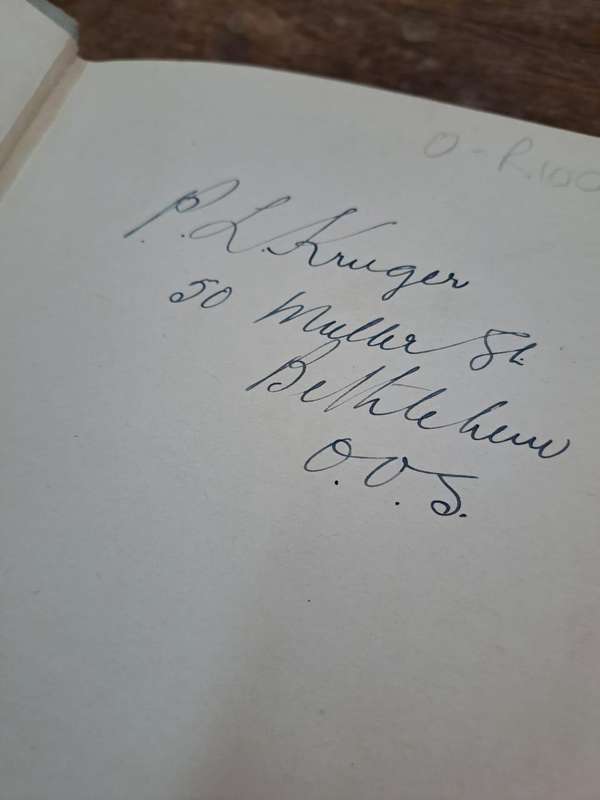 O - R.100
P. L. Kruger
50 Muller St.
Bethlehem
O.V.S.